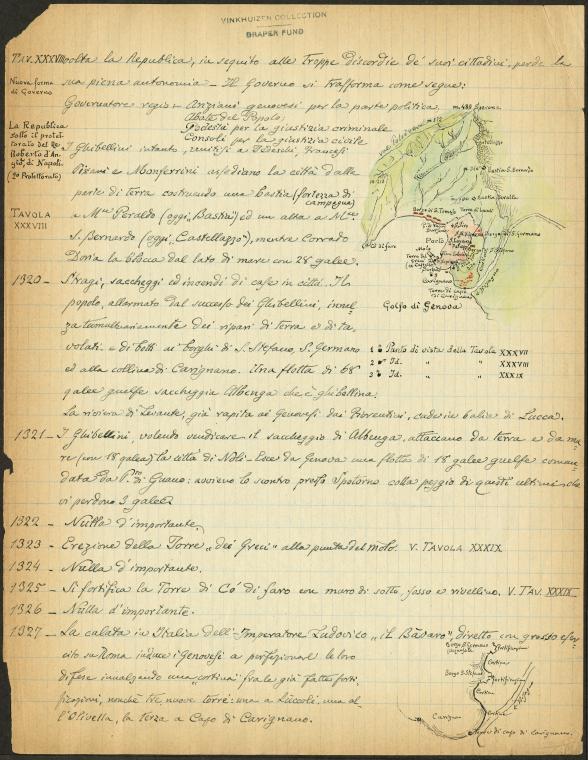 VINKHUIZEN COLLECTION
DRAPER FUND
TAV. XXXVIII
volta la Republica, in seguito alle troppe discordie de' suoi cittadini, perde la
sua piena autonomia - Il Governo si trasforma come segue:
Nuova forma
di Governo
Governatore regio - Anziani genovesi per la parte politica.
Abate del Popolo;
Podestà per la giustizia criminale
Consoli per la giustizia civile
La Republica
sotto il protet-
torato del Re
Roberto d'An-
giò, di Napoli.
(2º Protettorato)
I Ghibellini intanto, riunitisi a Tedeschi, Francesi
Pisani e Monferrini assediano la città dalla
parte di terra costruendo una bastia (fortezza di
campagna)
TAVOLA
XXXVIII
a Mte Peraldo (oggi "Bastia") ed un'altra a Mte
S. Bernardo (oggi "Castellazzo"), mentre Corrado
Doria la blocca dal lato di mare con 28 galee.
1320 - Stragi, saccheggi ed incendi di case in città. Il
popolo, allarmato dal successo dei Ghibellini, innal-
za tumultuariamente dei ripari di terra e di ta-
volati e di botti ai borghi di S. Stefano, S. Germano
ed alla collina di Carignano. Una flotta di 68
galee guelfe saccheggia Albenga che è ghibellina;
La riviera di Levante, già rapita ai Genovesi dai Fiorentini, cade in balia di Lucca.
1321 - I Ghibellini, volendo vendicare il saccheggio di Albenga, attaccano da terra e da ma-
re (con 18 galee) la città di Noli - Esce da Genova una flotta di 18 galee guelfe coman-
data da P.ro di Guano: avviene lo scontro presso Spotorno colla peggio di questi ultimi che
vi perdono 3 galee
1322 - Nulla d'importante.
1323 - Erezione della Torre "dei Greci" alla punta del molo. V. TAVOLA XXXIX
1324 - Nulla d'importante.
1325 - Si fortifica la Torre di Co' di faro con muro di sotto, fosso e rivellino. V. TAV. XXXIX
1326 - Nulla d'importante.
1327 - La calata in Italia dell'Imperatore Ludovico "il Bàvaro", diretto con grosso eser-
cito su Roma induce i Genovesi a perfezionare le loro
difese innalzando una "cortina" fra le già fatte forti-
ficazioni, nonchè tre nuove torri: una a Luccoli, una al-
l'Olivella, la terza a Capo di Carignano.
m. 489 Sperone
Bastia S. Bernardo
Bastia Peralda
Borgo di S. Tomaso
Torre di Luccoli
Co' di faro
Porto
Molo
Borgo di S. Germano
Carignano
Torre di capo
di Carignano
Golfo di Genova
1 Punto di vista della Tavola XXXVII
2 " Id. " " XXXVIII
3 " Id. " " XXXIX
Borgo S. Germano
Fortificazioni
Cortina
Borgo S. Stefano
Fortificazioni
Cortina
Cortina
Carignano
Torre di capo di Carignano.